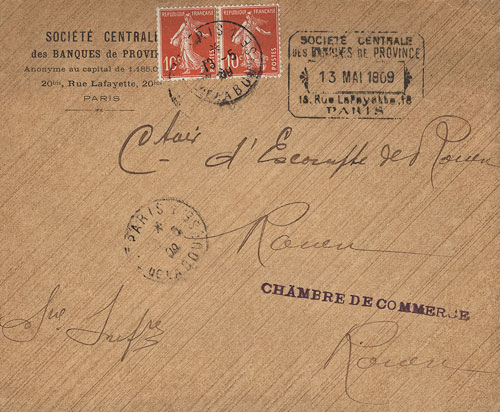 SOCIÉTÉ CENTRALE
des BANQUES de PROVIN
Anonyme au capital de 1.185.0
20bis, Rue Lafayette, 20bis
PARIS
REPUBLIQUE FRANÇAISE REPUBLIQUE FRANÇAISE
10c POSTES 10c POSTES
PARIS
SOCIÉTÉ CENTRALE
DES BANQUES DE PROVINCE
13 MAI 1909
18, Rue LaFayette, 18
PARIS
d'Escompte de Rouen
PARIS
Rouen
CHAMBRE DE COMMERCE
Rouen